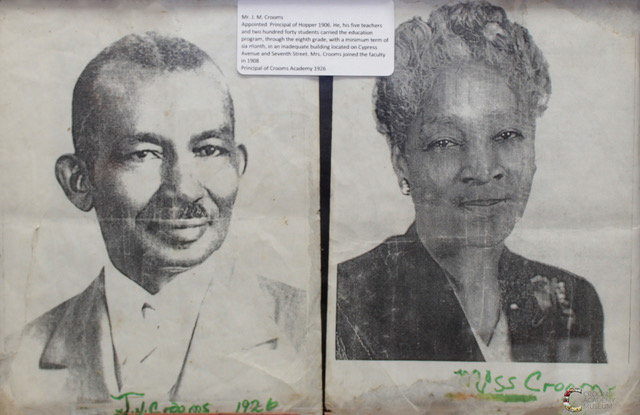 Mr. J. M. Crooms
Appointed Principal of Hopper 1906. He, his five teachers
and two hundred forty students carried the education
program, through the eighth grade, with a minimum term of
six month, in an inadequate building located on Cypress
Avenue and Seventh Street. Mrs. Crooms joined the faculty
in 1908
Principal of Crooms Academy 1926
J.J. Crooms 1926
Miss Crooms
MUSEUM